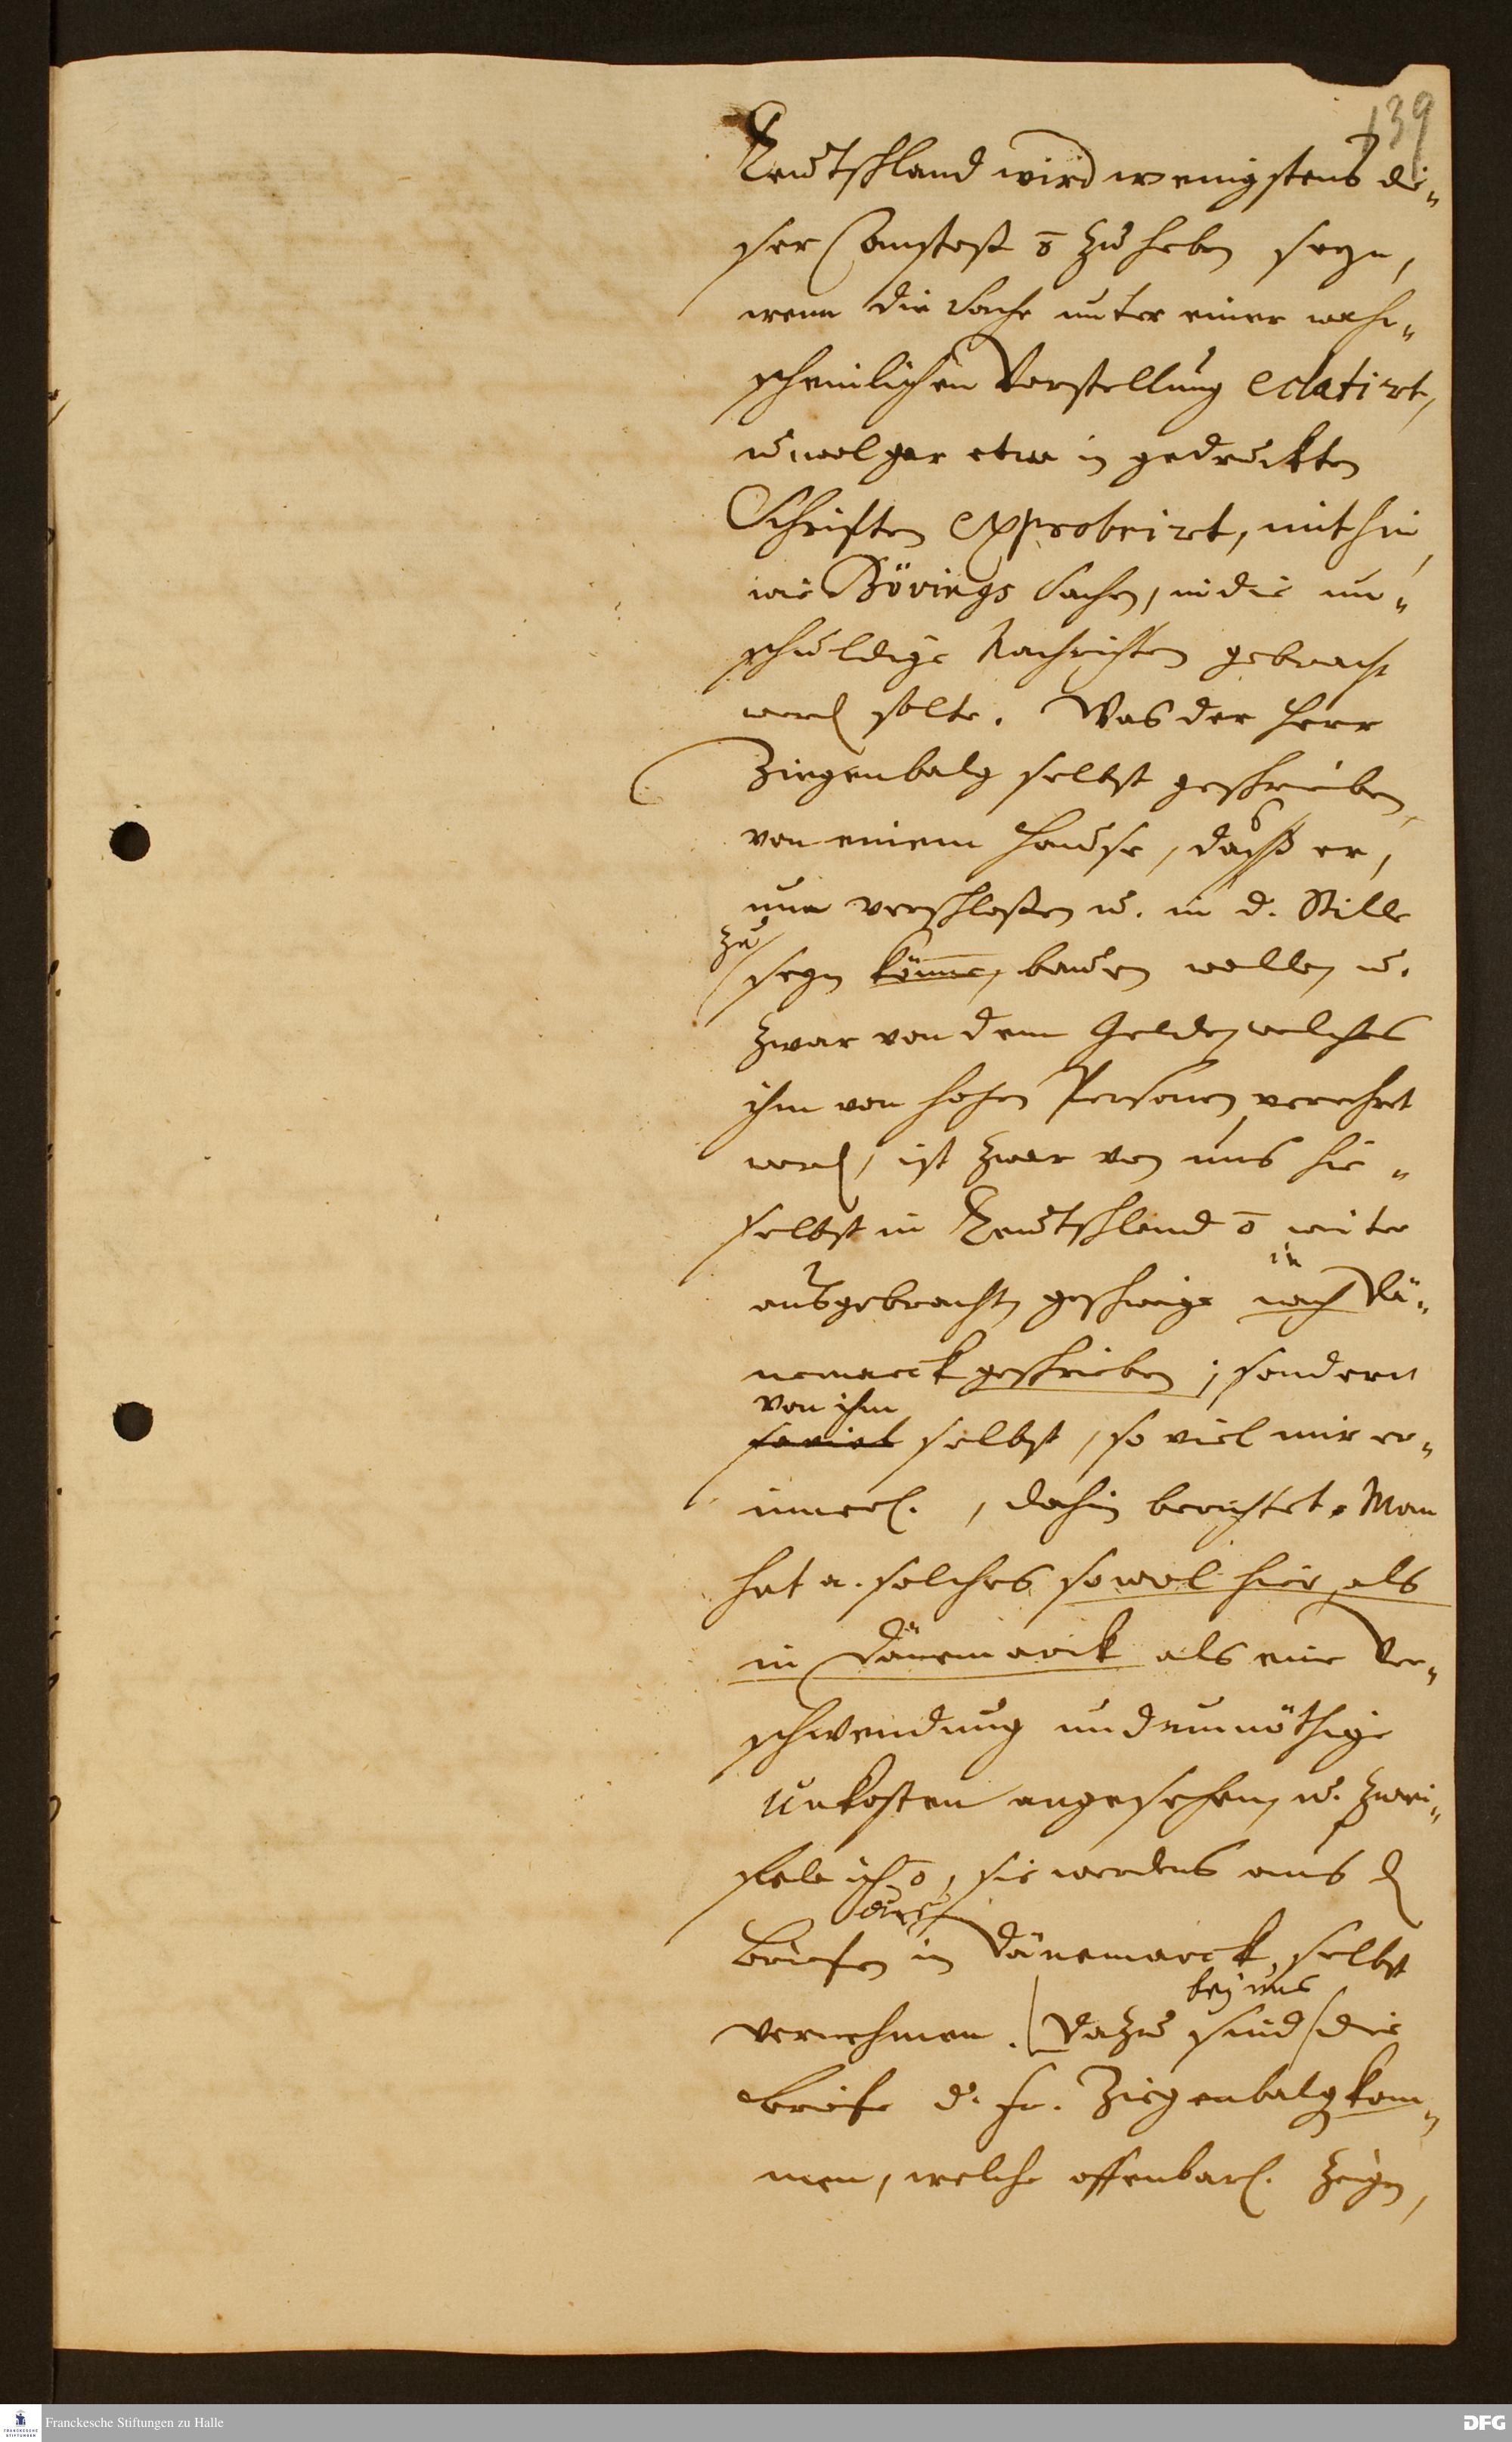 139
Teutschland wird wenigstens die„
ser Anstoß ō zu heben seyn,
wenn die Sache unter einer wahr„
scheinlichen Vorstellung eclatirt,
u. wol gar etwa in gedruckten
Schriften exprobrirt, mithin,
wie Bövings Sachen, in die un„
schuldige Nachrichten gebracht
werd. solte. Was der Herr
Ziegenbalg selbst geschrieben,
von einem Hause, daß er,
um verschloßen u. in d. Stille
zu
seyn könne, bauen wollen u.
zwar von dem Gelde, welches
ihm von hohen Personen verehret
word, ist zwar von uns hie„
selbst in Teutschland ō weiter
in
ausgebracht, geschweige nach Dä„
nemarck geschrieben; sondern
von ihm
soviel selbst, so viel mir er„
innerl., dahin berichtet. Man
hat a. solches sowol hier, als
in Dänemarck als eine Ver„
schwendung und unnöthige
Unkosten angesehen, u. zwei„
fele ich ō, sie werdens aus d
Briefen in Dänemarck selbst
vernehmen. Dazu sind die
bey uns
Briefe d. Hr. Ziegenbalg kom„
men, welche offenbarl. zeigen,
Franckesche Stiftungen zu Halle
DFG